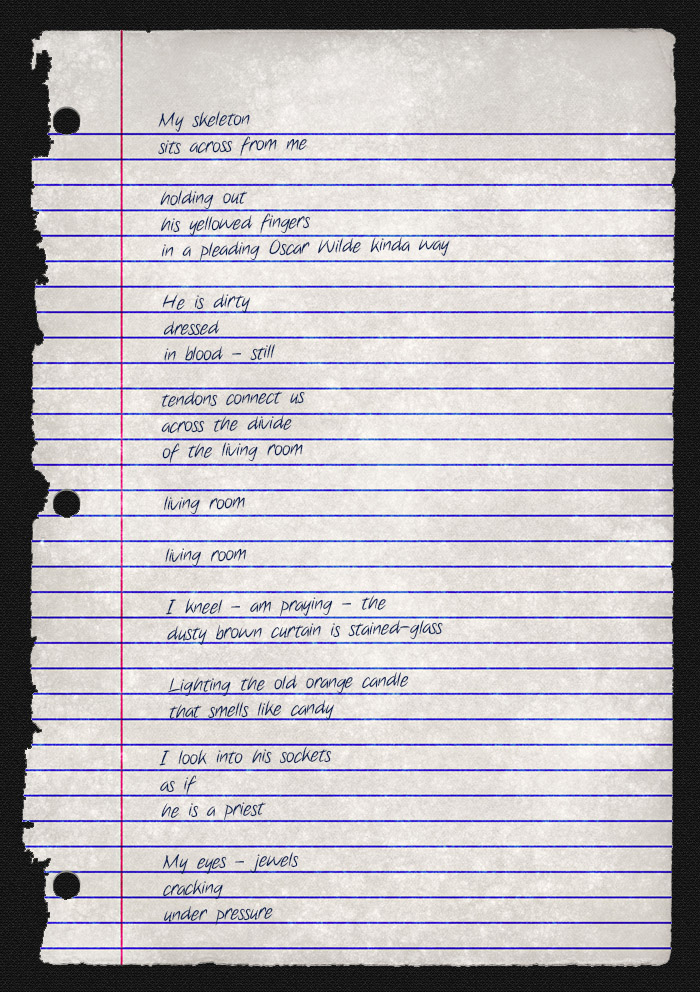 My skeleton
sits across from me
holding out
his yellowed fingers
in a pleading Oscar Wilde kinda way
He is dirty
dressed
in blood – still
tendons connect us
across the divide
of the living room
living room
living room
I kneel – am praying – the
dusty brown curtain is stained-glass
Lighting the old orange candle
that smells like candy
I look into his sockets
as if
he is a priest
My eyes – jewels
cracking
under pressure